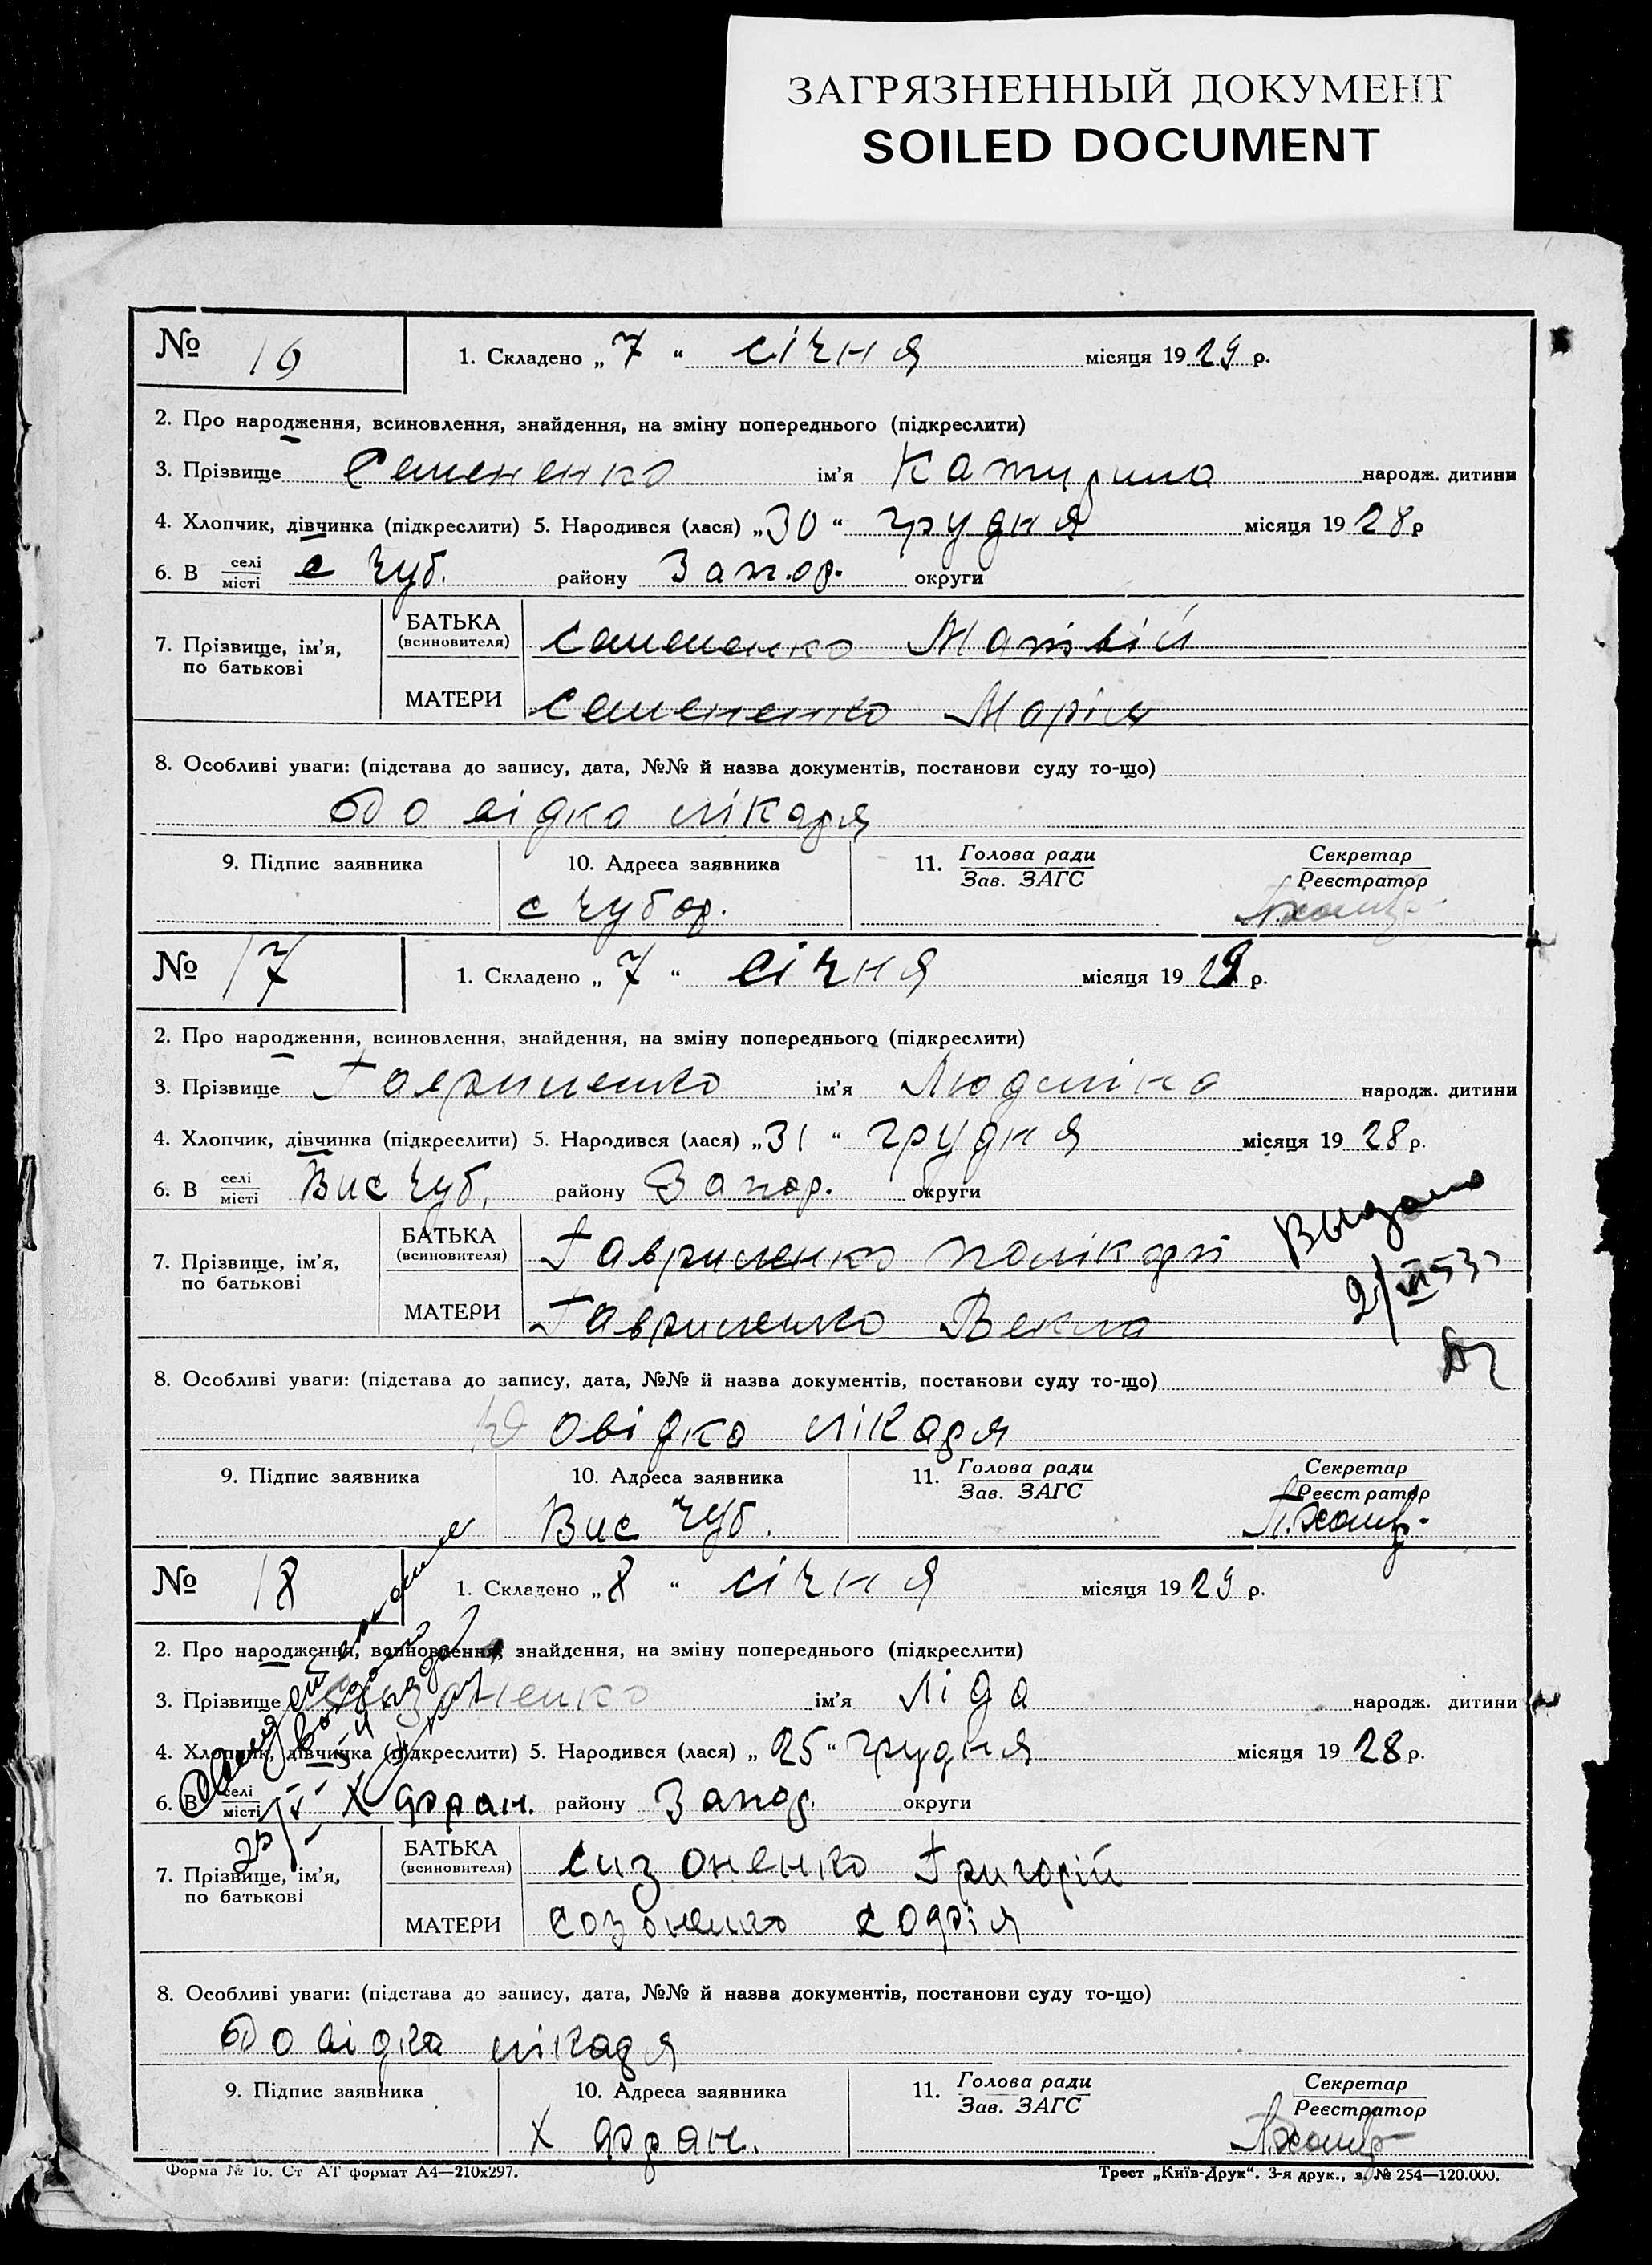 ЗАГРЯЗНЕННЫЙ ДОКУМЕНТ
SOILED DOCUMENT
№ 16 1. Складено „7“ січня місяця 1929 р.
2. Про народження, всиновлення, знайдення, на зміну попереднього (підкреслити)
3. Прізвище Семененко ім'я Катирина народж. дитини
4. Хлопчик, дівчинка (підкреслити) 5. Народився (лася) „30“ грудня місяця 1928 р
6. В селі місті с Чуб. району Запор. округи
7. Прізвище, ім'я, по батькові БАТЬКА (всиновителя) Семененко Матвій
МАТЕРИ Семененко Марія
8. Особливі уваги: (підстава до запису, дата, №№ й назва документів, постанови суду то-що)
Довідка лікаря
9. Підпис заявника 10. Адреса заявника 11. Голова ради Зав. ЗАГС Секретар Реєстратор
с Чубар.
№ 17 1. Складено „7“ січня місяця 1929 р.
2. Про народження, всиновлення, знайдення, на зміну попереднього (підкреслити)
3. Прізвище Гавриленко ім'я Людміла народж. дитини
4. Хлопчик, дівчинка (підкреслити) 5. Народився (лася) „31“ грудня місяця 1928 р.
6. В селі місті Вис Чуб. району Запор. округи
Выдано
7. Прізвище, ім'я, по батькові БАТЬКА (всиновителя) Гавриленко Полікарп
МАТЕРИ Гавриленко Векла
8. Особливі уваги: (підстава до запису, дата, №№ й назва документів, постанови суду то-що)
Довідка лікаря
9. Підпис заявника 10. Адреса заявника 11. Голова ради Зав. ЗАГС Секретар Реєстратор
Вис Чуб.
№ 18 1. Складено „8“ січня місяця 1929 р.
2. Про народження, всиновлення, знайдення, на зміну попереднього (підкреслити)
3. Прізвище ім'я Ліда народж. дитини
4. Хлопчик, дівчинка (підкреслити) 5. Народився (лася) „25“ грудня місяця 1928 р.
6. В селі місті Х Фран. району Запор. округи
7. Прізвище, ім'я, по батькові БАТЬКА (всиновителя) Сизоненко Григорій
МАТЕРИ Созоненко Софія
8. Особливі уваги: (підстава до запису, дата, №№ й назва документів, постанови суду то-що)
Довідка лікаря
9. Підпис заявника 10. Адреса заявника 11. Голова ради Зав. ЗАГС Секретар Реєстратор
Х Фран.
Форма № 1б. Ст АТ формат А4—210х297. Трест „Київ-Друк“. 3-я друк., з. № 254—120.000.